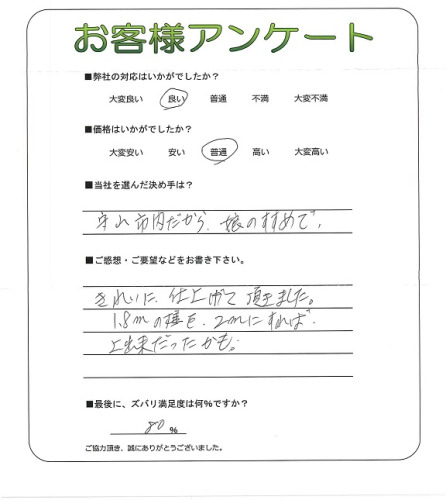 お客様アンケート
■弊社の対応はいかがでしたか?
大変良い 良い 普通 不満 大変不満
■価格はいかがでしたか?
大変安い 安い 普通 高い 大変高い
■当社を選んだ決め手は?
市内だから、娘のすすめで、
■ご感想・ご要望などをお書き下さい。
きれいに仕上げて頂きました。
1.8mの塀を、2mにすれば、
上出来だったかも。
■最後に、ズバリ満足度は何%ですか?
80 %
ご協力頂き、誠にありがとうございました。